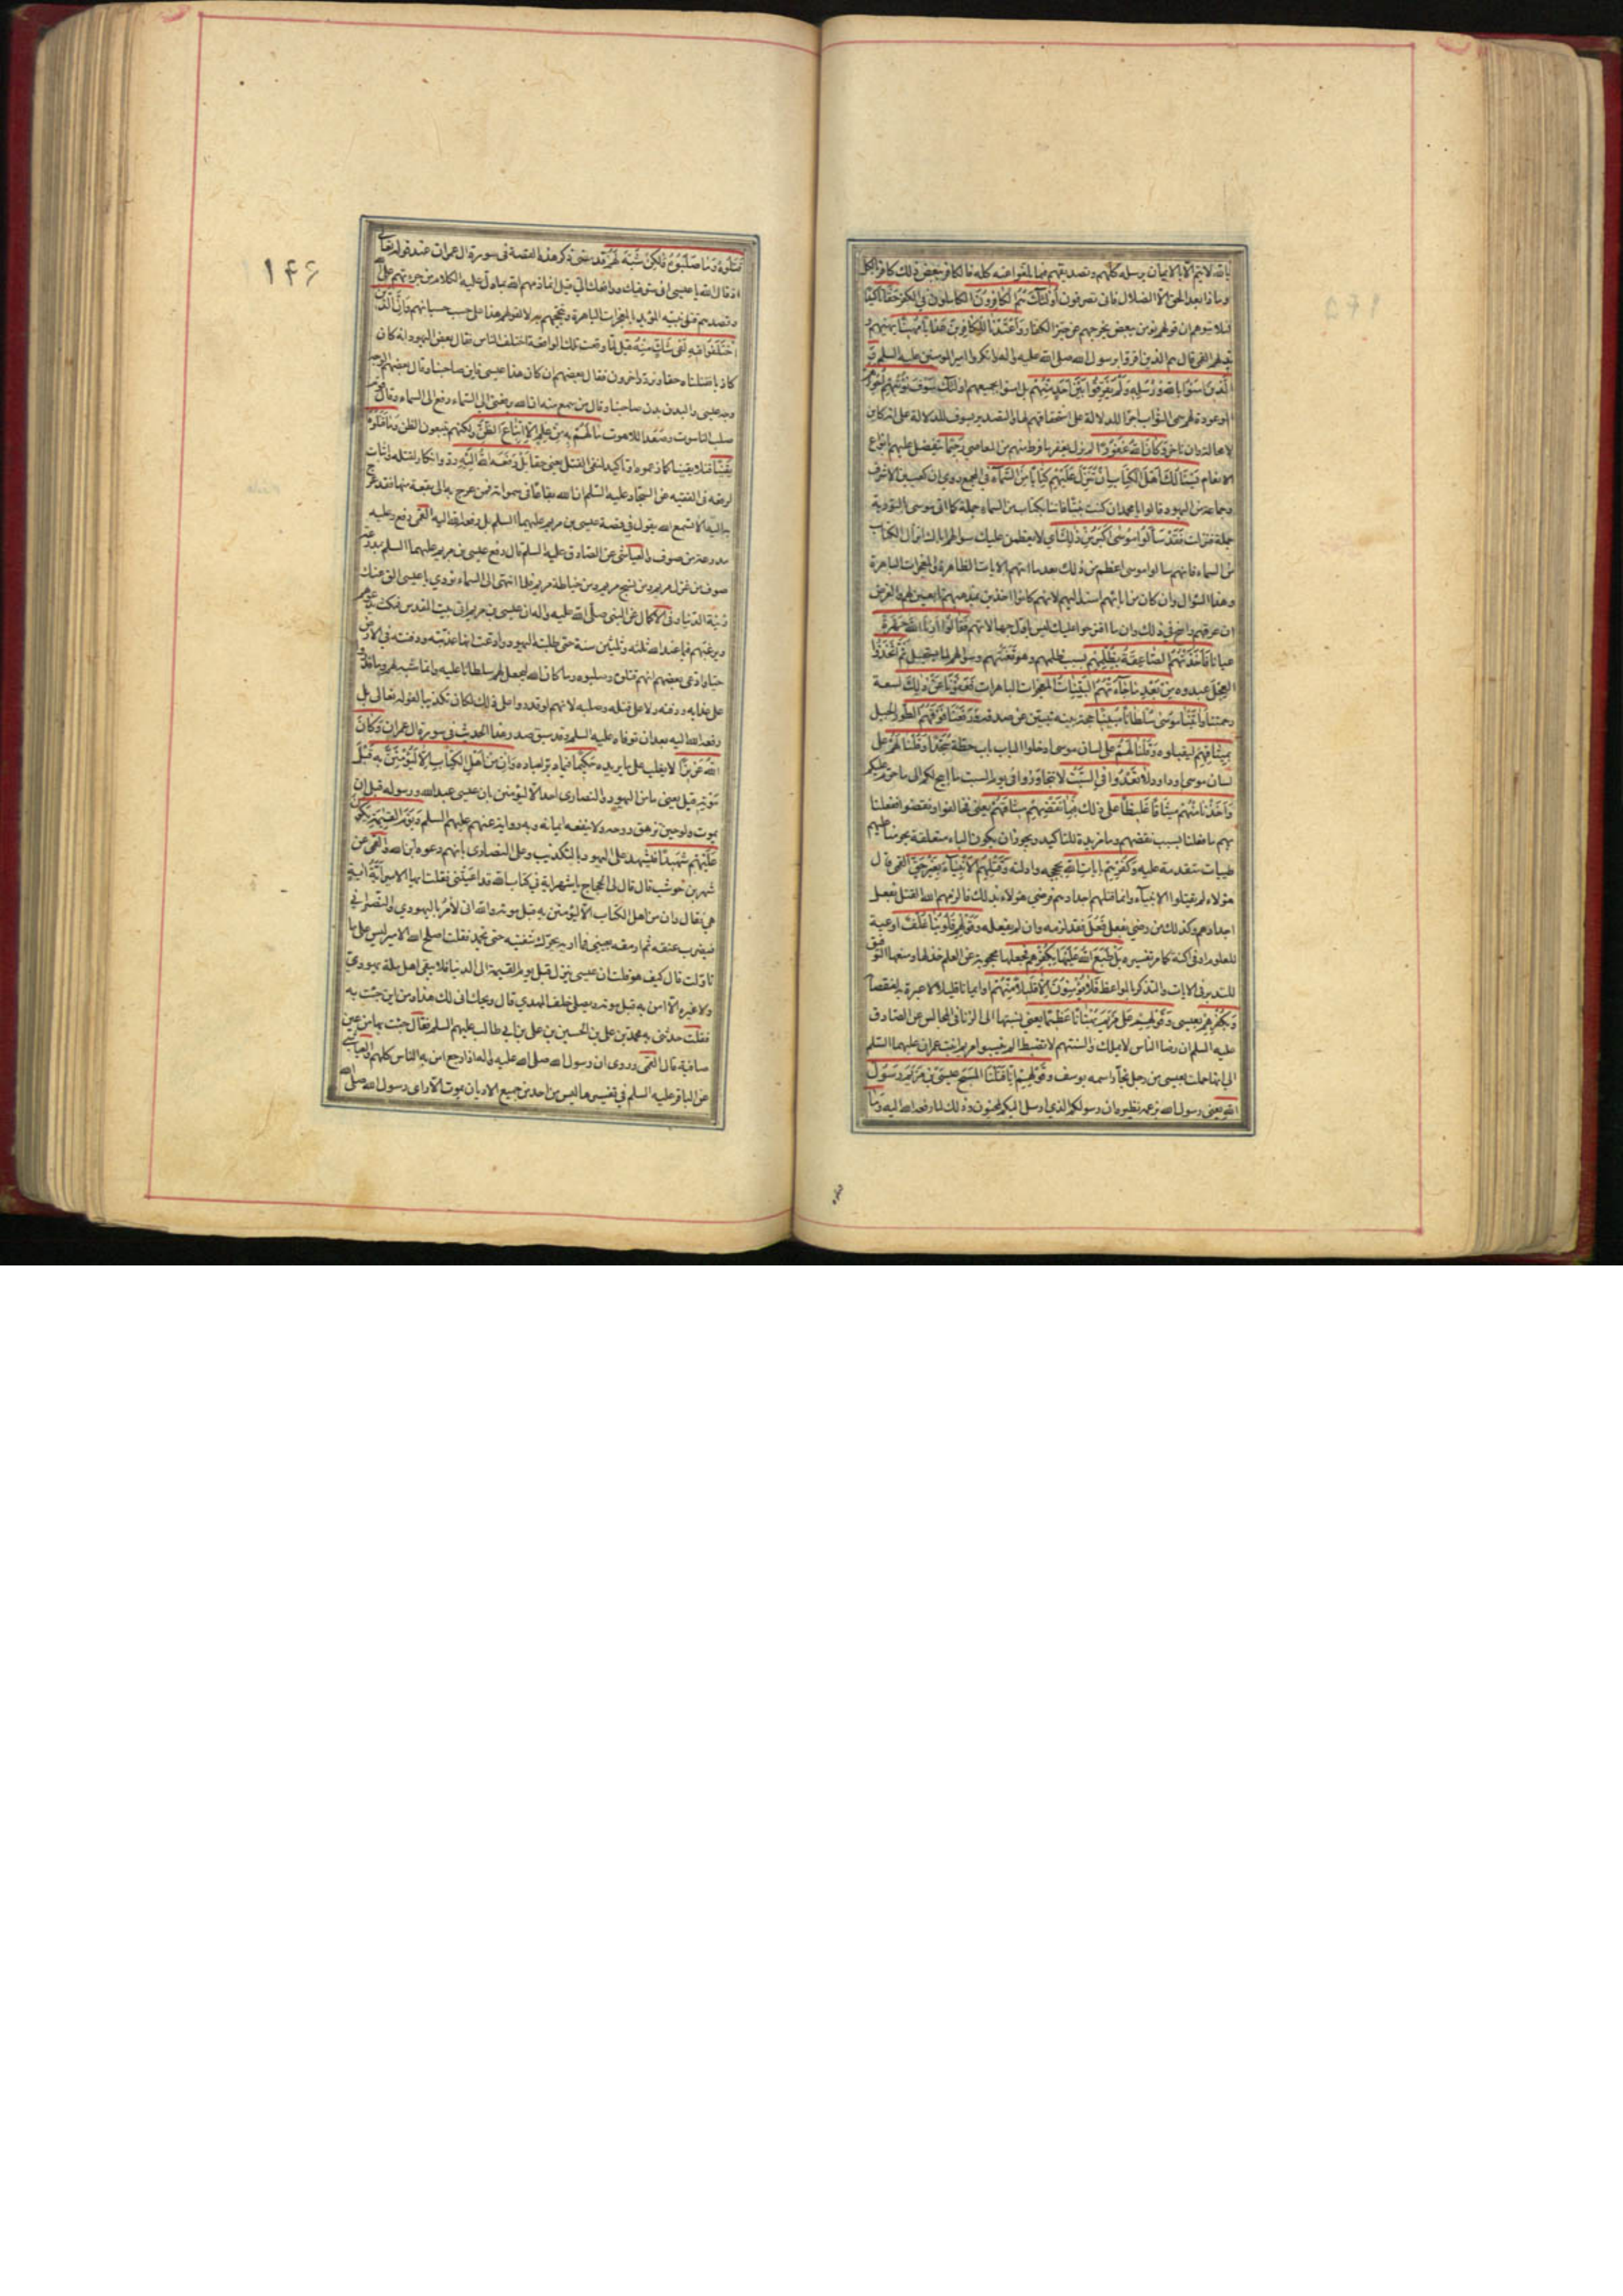 بالله لا يتم الا بالايمان برسله كلهم وتصديقهم فيما بلغوا عنه كله فالكافر ببعض ذلك كافر بالكل
وماذا بعد الحق الا الضلال فانى تصرفون اولئك هم الكافرون الكاملون في الكفر حقا تاكيد
لئلا يتوهم ان قولهم نؤمن ببعض يخرجهم عن حيز الكفار واعتدنا للكافرين عذابا مهينا يهينهم و
يذلهم القمي قال هم الذين اقروا برسول الله صلى الله عليه واله وانكروا امير المومنين عليه السلم و
الذين امنوا بالله ورسله ولم يفرقوا بين احد منهم بل امنوا بجميعهم اولئك سوف نؤتيهم اجورهم
الموعودة لهم سمي الثواب اجرا للدلالة على استحقاقهم لها والتصدير بسوف للدلالة على انه كاين
لا محالة وان تاخر وكان الله غفورا لم يزل يغفر ما فرط منهم من المعاصي رحيما يتفضل عليهم بانواع
الانعام يسئلك اهل الكتاب ان تنزل عليهم كتابا من السماء في المجمع روي ان كعب بن الاشرف
وجماعة من اليهود قالوا يا محمد ان كنت نبيا فاتنا بكتاب من السماء جملة كما اتى موسى بالتورية
جملة فنزلت فقد سالوا موسى اكبر من ذلك اي لا يعظمن عليك سؤالهم اياك انزال الكتاب
من السماء فانهم سالوا موسى اعظم من ذلك بعد ما اتيهم الايات الظاهرة والمعجزات الباهرة
وهذا السؤال وان كان من ابائهم اسند اليهم لانهم كانوا اخذين بمذهبهم تابعين لهم والغرض
ان عرقهم راسخ في ذلك وان ما اقترحوا عليك ليس اول جهالاتهم فقالوا ارنا الله جهرة
عيانا فاخذتهم الصاعقة بظلمهم بسبب ظلمهم وهو تعنتهم وسؤالهم لما يستحيل ثم اتخذوا
العجل عبدوه من بعد ما جاءتهم البينات المعجزات الباهرات فعفونا عن ذلك لسعة
رحمتنا واتينا موسى سلطانا مبينا حجة بينة تبين عن صدقه ورفعنا فوقهم الطور الجبل
بميثاقهم ليقبلوه وقلنا لهم على لسان موسى ادخلوا الباب باب حطة سجدا وقلنا لهم على
لسان موسى وداود لا تعدوا في السبت لا تتجاوزوا في يوم السبت ما ابيح لكم الى ما حرم عليكم
واخذنا منهم ميثاقا غليظا على ذلك فبما نقضهم ميثاقهم يعني فخالفوا ونقضوا ففعلنا
بهم ما فعلنا بسبب نقضهم وما مزيدة للتاكيد ويجوز ان يكون الباء متعلقة بحرمنا عليهم
طيبات متقدمة عليه وكفرهم بايات الله بحججه وادلته وقتلهم الانبياء بغير حق القمي قال
هؤلاء لم يقتلوا الانبياء وانما قتلهم اجدادهم فرضي هؤلاء بذلك فالزمهم الله القتل بفعل
اجدادهم وكذلك من رضي بفعل فعل فقد لزمه وان لم يفعله وقولهم قلوبنا غلف اوعية
للعلوم او في اكنة كما مر تفسيره بل طبع الله عليها بكفرهم فجعلها محجوبة عن العلم خذلها ومنعها التوفيق
للتدبر في الايات والتذكر بالمواعظ فلا يؤمنون الا قليلا منهم او ايمانا قليلا لا عبرة به لنقصانه
وبكفرهم بعيسى وقولهم على مريم بهتانا عظيما يعني نسبتها الى الزنا في المجالس عن الصادق
عليه السلم ان رضا الناس لا يملك والسنتهم لا تضبط الم ينسبوا مريم ابنت عمران عليهما السلم
الى انها حملت بعيسى من رجل نجار اسمه يوسف وقولهم انا قتلنا المسيح عيسى بن مريم رسول
الله يعني رسول الله بزعمه نظيره ان رسولكم الذي ارسل اليكم لمجنون وذلك لما رفعه الله اليه وما
قتلوه
١٤٦
قتلوه وما صلبوه ولكن شبه لهم قد مضى ذكر هذه القصة في سورة ال عمران عند قوله تعالى
اذ قال الله يا عيسى اني متوفيك ورافعك الي قيل انما ذمهم الله بما دل عليه الكلام من جرءتهم على الله
وقصدهم قتل نبيه المؤيد بالمعجزات الباهرة وتبجحهم به لا لقولهم هذا على حسب حسبانهم وان الذين
اختلفوا فيه لفي شك منه قيل لما وقعت تلك الواقعة اختلف الناس فقال بعض اليهود انه كان
كاذبا فقتلناه حقا وتردد اخرون فقال بعضهم ان كان هذا عيسى فاين صاحبنا وقال بعضهم الوجه
وجه عيسى والبدن بدن صاحبنا وقال من سمع منه ان الله يرفعني الى السماء رفع الى السماء وقال قوم
صلب الناسوت وصعد اللاهوت ما لهم به من علم الا اتباع الظن ولكنهم يتبعون الظن وما قتلوه
يقينا قتلا يقينا كما زعموه او تاكيد لنفي القتل يعني حقا بل رفعه الله اليه رد وانكار لقتله واثبات
لرفعه في الفقيه عن السجاد عليه السلم ان لله بقاعا في سمواته فمن عرج به الى بقعة منها فقد عرج
به اليه الا تسمع الله يقول في قصة عيسى بن مريم عليهما السلم بل رفعه الله اليه القمي رفع وعليه
مدرعة من صوف والعياشي عن الصادق عليه السلم قال رفع عيسى بن مريم عليهما السلم بمدرعة
صوف من غزل مريم ومن نسج مريم ومن خياطة مريم فلما انتهى الى السماء نودي يا عيسى الق عنك
زينة الدنيا وفي الاكمال عن النبي صلى الله عليه واله ان عيسى بن مريم اتى بيت المقدس فمكث يدعوهم
ويرغبهم فيما عند الله ثلثة وثلثين سنة حتى طلبته اليهود وادعت انها عذبته ودفنته في الارض
حيا وادعى بعضهم انهم قتلوه وصلبوه وما كان الله ليجعل لهم سلطانا عليه وانما شبه لهم وما قدروا
على عذابه ودفنه ولا على قتله وصلبه لانهم لو قدروا على ذلك لكان تكذيبا لقوله تعالى بل
رفعه الله اليه بعد ان توفاه عليه السلم وقد سبق صدر هذا الحديث في سورة ال عمران وكان
الله عزيزا لا يغلب على ما يريده حكيما فيما دبر لعباده وان من اهل الكتاب الا ليؤمنن به قبل
موته قيل يعني ما من اليهود والنصارى احد الا ليؤمنن بان عيسى عبد الله ورسوله قبل ان
يموت ولو حين تزهق روحه ولا ينفعه ايمانه وبه رواية عنهم عليهم السلم ويوم القيمة يكون
عليهم شهيدا فيشهد على اليهود بالتكذيب وعلى النصارى بانهم دعوه ابن الله والقمي عن
شهر بن حوشب قال قال لي الحجاج يا شهر اية في كتاب الله قد اعيتني فقلت ايها الامير اية اية
هي فقال وان من اهل الكتاب الا ليؤمنن به قبل موته والله اني لامر باليهودي والنصراني
فيضرب عنقه ثم ارمقه بعيني فما اريه يحرك شفتيه حتى يخمد فقلت اصلح الله الامير ليس على ما
تاولت قال كيف هو قلت ان عيسى ينزل قبل يوم القيمة الى الدنيا فلا يبقى اهل ملة يهودي
ولا غيره الا امن به قبل موته ويصلي خلف المهدي قال ويحك انى لك هذا ومن اين جئت به
فقلت حدثني به محمد بن علي بن الحسين بن علي بن ابي طالب عليهم السلم فقال جئت بها من عين
صافية قال القمي وروى ان رسول الله صلى الله عليه واله اذا رجع امن به الناس كلهم والعياشي
عن الباقر عليه السلم في تفسيرها ليس من احد من جميع الاديان يموت الا راى رسول الله صلى الله